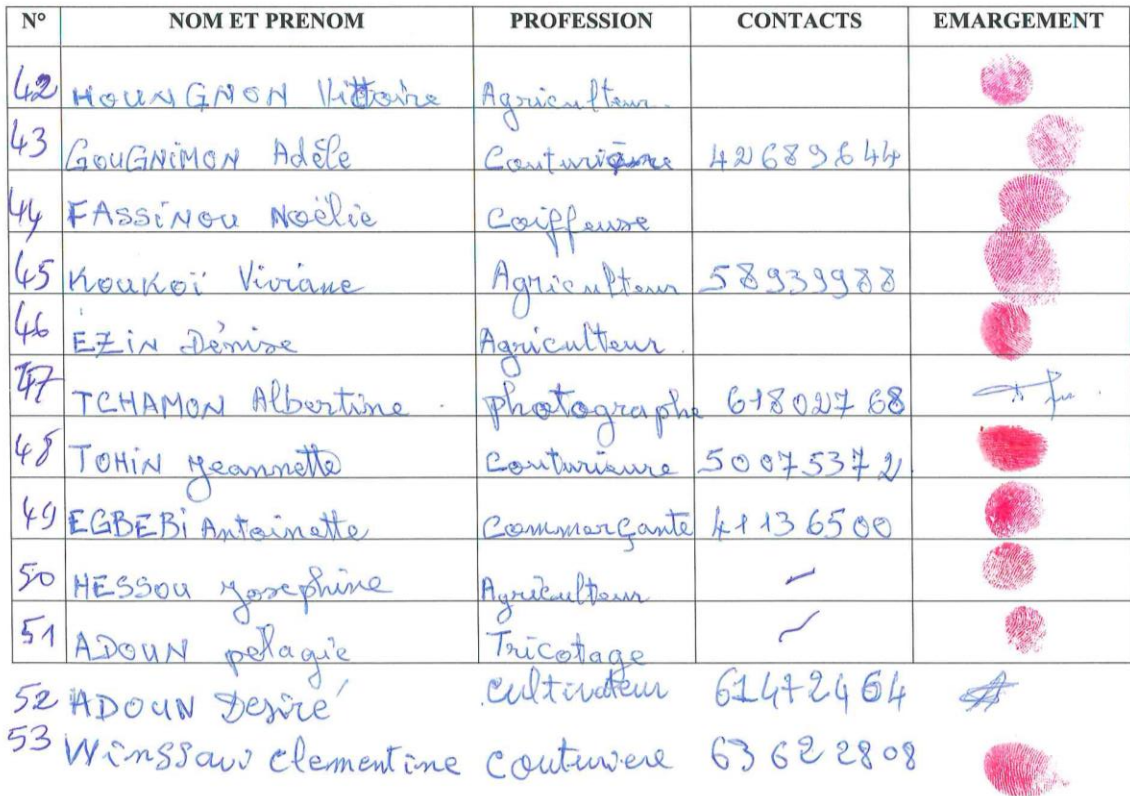 N° NOM ET PRENOM PROFESSION CONTACTS EMARGEMENT
42 HOUNGNON Vittoire Agriculteur
43 GOUGNIMON Adéle Couturière 42689644
44 FASSiNOU Noëlie Coiffeuse
45 KOUKOÏ Viviane Agriculteur 58939988
46 EZiN Dénise Agriculteur.
47 TCHAMON Albertine. photographe 61802768
48 TOHiN Jeannette Couturieure 50075372
49 EGBEBi Antoinette Commerçante 41136500
50 HESSOU Josephine Agriculteur
51 ADOUN pélagie Tricotage
52 ADOUN Desiré cultivateur 61472464
53 clementine couturiere 63622808